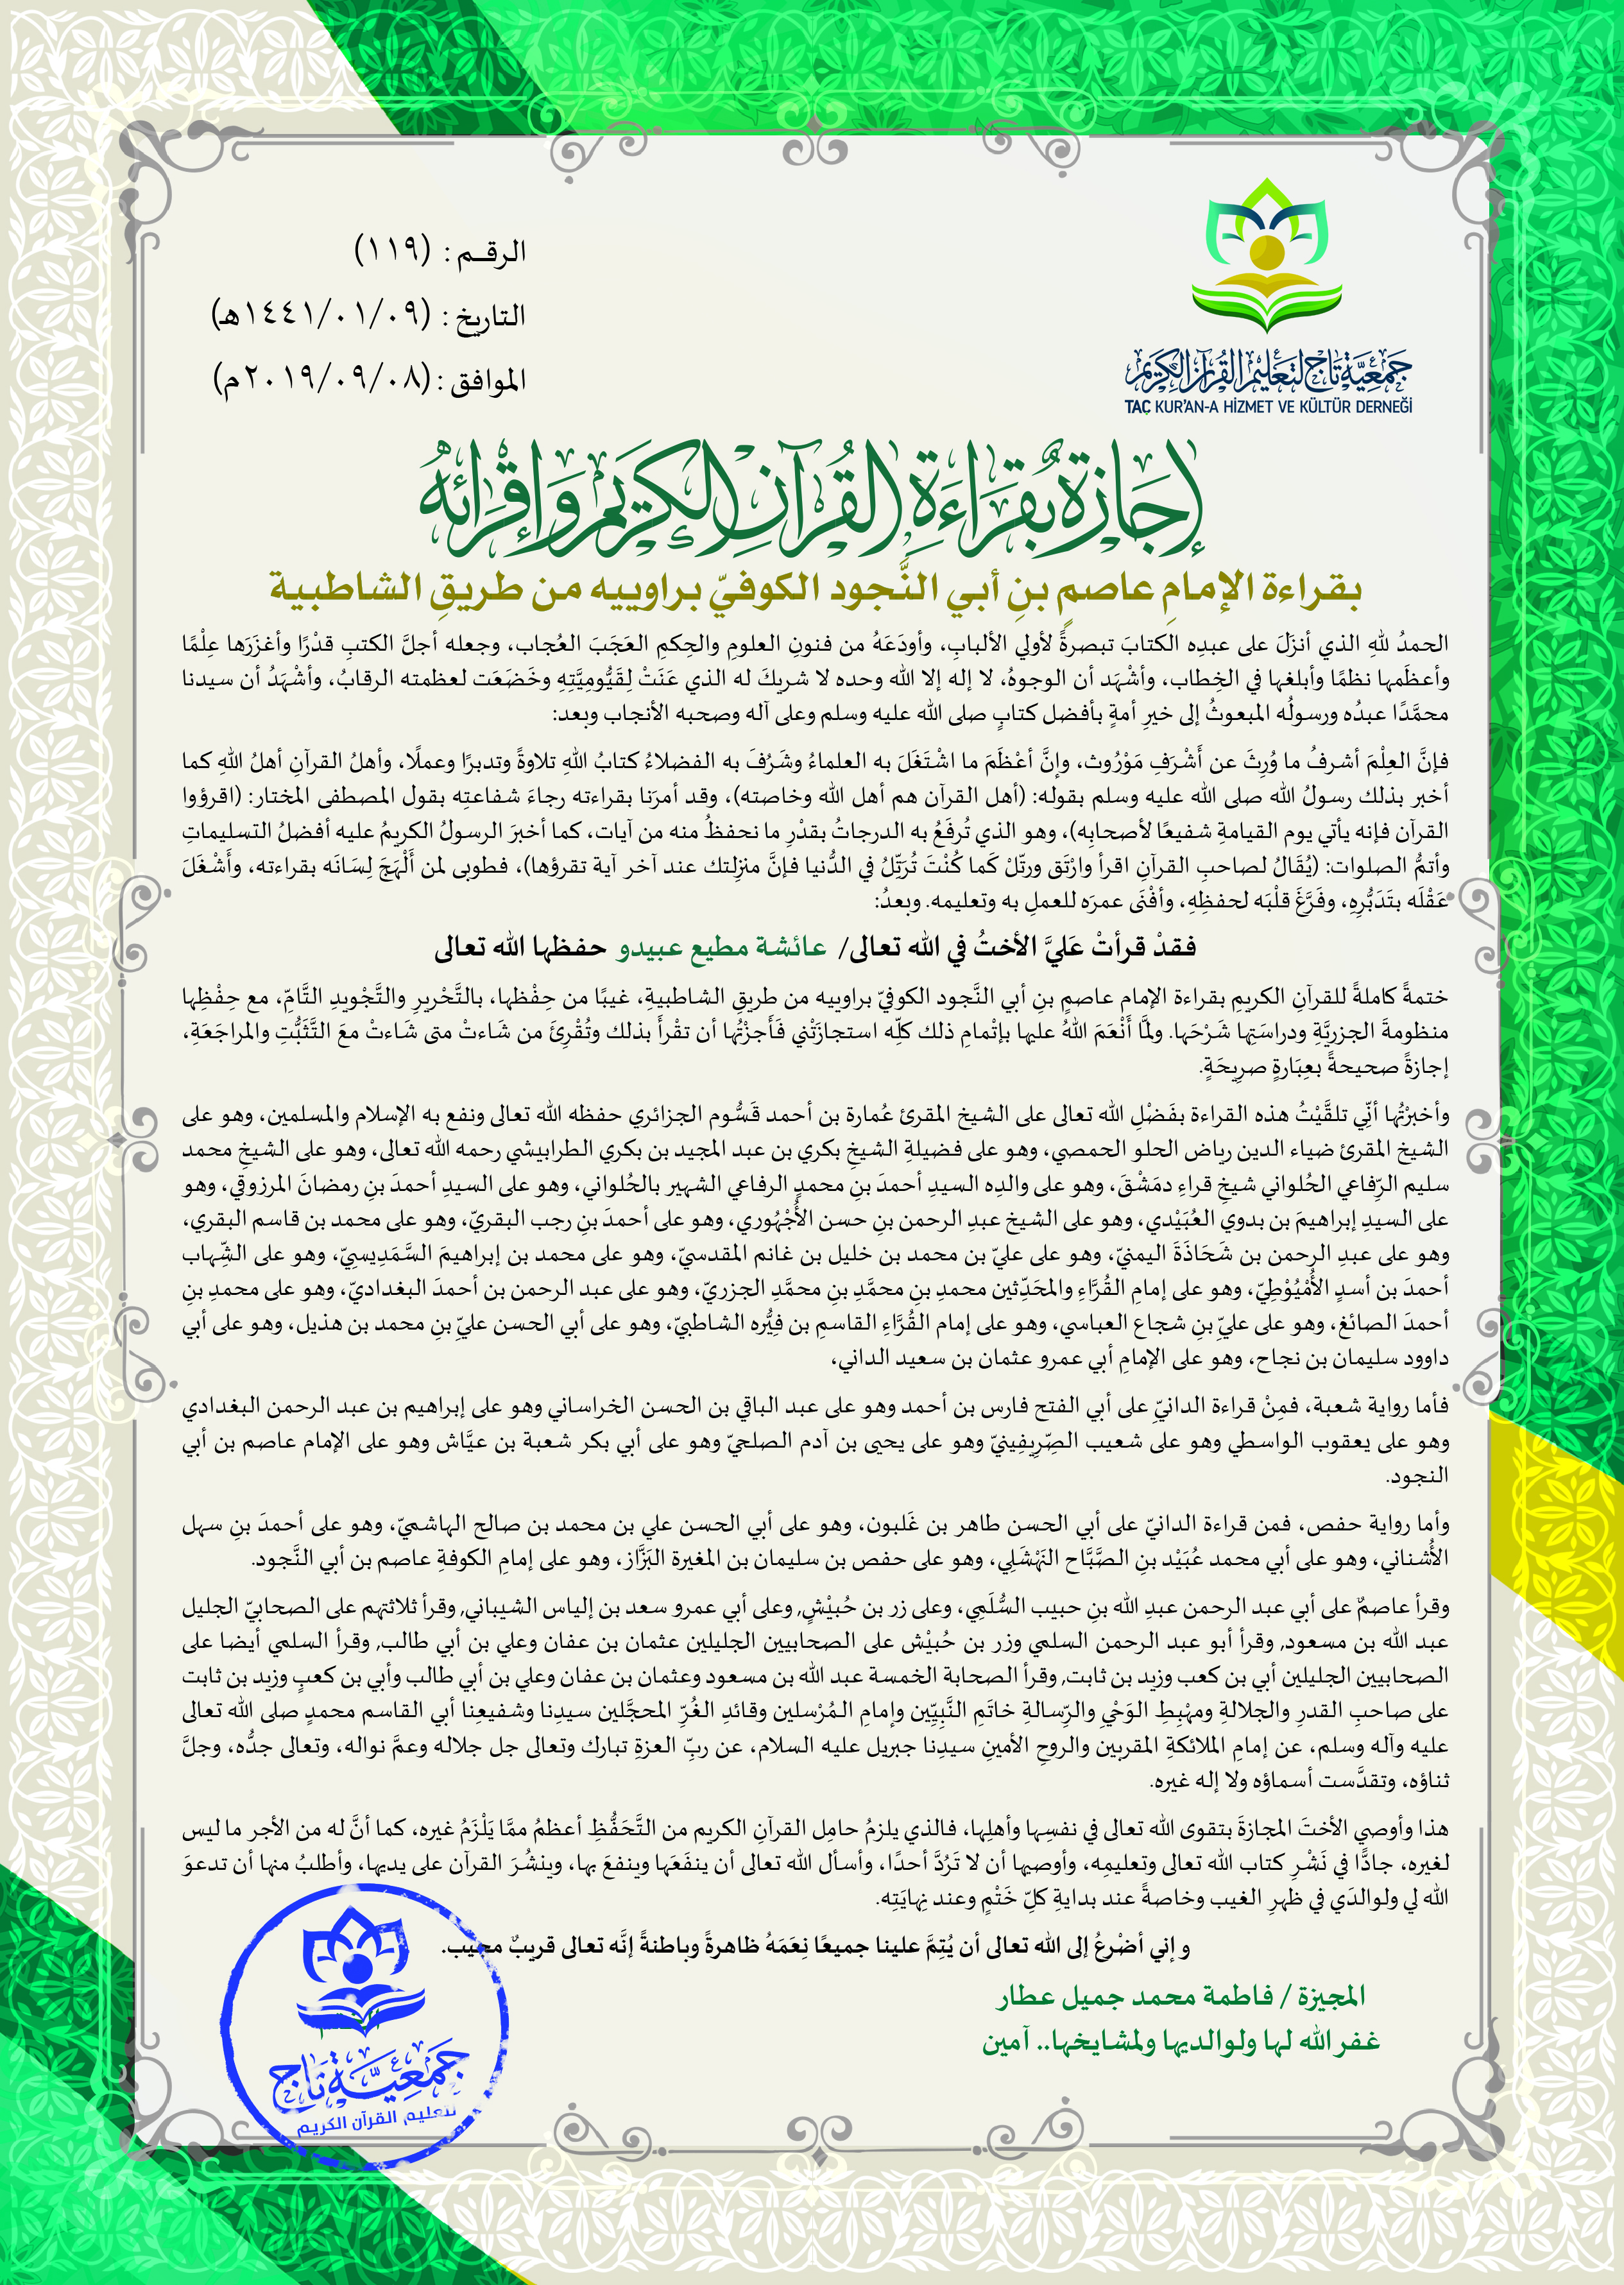 الرقـم : (١١٩)
التاريخ : (١٤٤١/٠١/٠٩هـ)
الموافق : (٢٠١٩/٠٩/٠٨م)
جمعية تاج لتعليم القرآن الكريم
TAÇ KUR'AN-A HİZMET VE KÜLTÜR DERNEĞİ
إجازة بقراءة القرآن الكريم وإقرائه
بقراءة الإمامِ عاصمٍ بنِ أبي النَّجود الكوفيّ براوييه من طريقِ الشاطبية
الحمدُ للهِ الذي أنزَلَ على عبدِه الكتابَ تبصرةً لأولي الألبابِ، وأودَعَهُ من فنونِ العلومِ والحِكمِ العَجَبَ العُجاب، وجعله أجلَّ الكتبِ قدْرًا وأغزَرَها عِلْمًا
وأعظَمِها نظمًا وأبلغِها في الخِطاب، وأشْهَد أن الوجوهُ، لا إله إلا الله وحده لا شريكَ له الذي عَنَتْ لِقَيُّومِيَّتِهِ وخَضَعَت لعظمته الرقابُ، وأشْهَدُ أن سيدنا
محمَّدًا عبدُه ورسولُه المبعوثُ إلى خيرِ أمةٍ بأفضل كتابٍ صلى الله عليه وسلم وعلى آله وصحبه الأنجاب وبعد:
فإنَّ العِلْمَ أشرفُ ما وُرِثَ عن أَشْرَفِ مَوْرُوث، وإنَّ أعْظَمَ ما اشْتَغَلَ به العلماءُ وشَرُفَ به الفضلاءُ كتابُ اللهِ تلاوةً وتدبرًا وعملًا، وأهلُ القرآنِ أهلُ اللهِ كما
أخبر بذلك رسولُ الله صلى الله عليه وسلم بقوله: (أهل القرآن هم أهل الله وخاصته)، وقد أمرَنا بقراءته رجاءَ شفاعتِه بقول المصطفى المختار: (اقرؤوا
القرآن فإنه يأتي يوم القيامةِ شفيعًا لأصحابِه)، وهو الذي تُرفَعُ به الدرجاتُ بقدْرِ ما نحفظُ منه من آيات، كما أخبرَ الرسولُ الكريمُ عليه أفضلُ التسليماتِ
وأتمُّ الصلوات: (يُقَالُ لصاحبِ القرآنِ اقرأ وارْتَق ورتّلْ كَما كُنْتَ تُرَتِّلُ في الدُّنيا فإنَّ منزلِتك عند آخر آية تقرؤها)، فطوبى لمن أَلْهَجَ لِسَانَه بقراءته، وأَشْغَلَ
عَقْلَه بتَدَبُّرِهِ، وفَرَّغَ قلْبَه لحفظِهِ، وأفْنَى عمرَه للعملِ به وتعليمه. وبعدُ:
فقدْ قرأتْ عَليَّ الأختُ في الله تعالى/ عائشة مطيع عبيدو حفظها الله تعالى
ختمةً كاملةً للقرآنِ الكريمِ بقراءة الإمام عاصمٍ بنِ أبي النَّجود الكوفيّ براوييه من طريقِ الشاطبيةِ، غيبًا من حِفْظها، بالتَّحْريرِ والتَّجْويدِ التَّامِّ، مع حِفْظِها
منظومةَ الجزريَّةِ ودراسَتِها شَرْحَها. ولمَّا أَنْعَمَ اللهُ عليها بإتْمامِ ذلك كلِّه استجازَتْني فَأَجزْتُها أن تقْرأَ بذلك وتُقْرِئَ من شَاءتْ متى شَاءتْ معَ التَّثَبُّتِ والمراجَعَةِ،
إجازةً صحيحةً بعِبَارةٍ صرِيحَةٍ.
وأخبرْتُها أنّي تلقَّيْتُ هذه القراءة بفَضْلِ الله تعالى على الشيخ المقرئ عُمارة بن أحمد قَسُّوم الجزائري حفظه الله تعالى ونفع به الإسلام والمسلمين، وهو على
الشيخ المقرئ ضياء الدين رياض الحلو الحمصي، وهو على فضيلةِ الشيخِ بكري بن عبد المجيد بن بكري الطرابيشي رحمه الله تعالى، وهو على الشيخِ محمد
سليم الرِّفاعي الحُلواني شيخِ قراءِ دمَشْقَ، وهو على والدِه السيدِ أحمدَ بنِ محمدٍ الرفاعي الشهير بالحُلواني، وهو على السيدِ أحمدَ بنِ رمضانَ المرزوقي، وهو
على السيدِ إبراهيمَ بن بدوي العُبَيْدي، وهو على الشيخ عبدِ الرحمن بنِ حسن الأُجْهُوري، وهو على أحمدَ بنِ رجب البقريّ، وهو على محمد بن قاسم البقري،
وهو على عبدِ الرحمن بن شَحَاذَةَ اليمنيّ، وهو على عليّ بن محمد بن خليل بن غانم المقدسيّ، وهو على محمد بن إبراهيمَ السَّمَدِيسِيّ، وهو على الشِّهاب
أحمدَ بن أسدٍ الأُمْيُوْطِيّ، وهو على إمامِ القُرَّاءِ والمحَدِّثين محمدِ بنِ محمَّدِ بنِ محمَّدِ الجزريّ، وهو على عبد الرحمن بن أحمدَ البغداديّ، وهو على محمدِ بنِ
أحمدَ الصائغ، وهو على عليِّ بنِ شجاع العباسي، وهو على إمام القُرَّاءِ القاسمِ بن فِيُّره الشاطبيّ، وهو على أبي الحسن عليِّ بنِ محمد بن هذيل، وهو على أبي
داوود سليمان بن نجاح، وهو على الإمامِ أبي عمرو عثمان بن سعيد الداني،
فأما رواية شعبة، فمِنْ قراءة الدانيّ على أبي الفتح فارس بن أحمد وهو على عبد الباقي بن الحسن الخراساني وهو على إبراهيم بن عبد الرحمن البغدادي
وهو على يعقوب الواسطي وهو على شعيب الصِّرِيفِينيّ وهو على يحيى بن آدم الصلحيّ وهو على أبي بكر شعبة بن عيَّاش وهو على الإمام عاصم بن أبي
النجود.
وأما رواية حفص، فمن قراءة الدانيّ على أبي الحسن طاهر بن غَلبون، وهو على أبي الحسن علي بن محمد بن صالح الهاشميّ، وهو على أحمدَ بنِ سهل
الأُشناني، وهو على أبي محمد عُبَيْد بنِ الصَّبَّاح النَهْشَلِي، وهو على حفص بن سليمان بن المغيرة البَزَّاز، وهو على إمامِ الكوفةِ عاصم بن أبي النَّجود.
وقرأ عاصمٌ على أبي عبد الرحمن عبدِ الله بنِ حبيب السُّلَمِي، وعلى زر بن حُبيْشٍ, وعلى أبي عمرو سعد بن إلياس الشيباني, وقرأ ثلاثتهم على الصحابيّ الجليل
عبد الله بن مسعود, وقرأ أبو عبد الرحمن السلمي وزر بن حُبيْش على الصحابيين الجليلين عثمان بن عفان وعلي بن أبي طالب, وقرأ السلمي أيضا على
الصحابيين الجليلين أبي بن كعب وزيد بن ثابت, وقرأ الصحابة الخمسة عبد الله بن مسعود وعثمان بن عفان وعلي بن أبي طالب وأبي بن كعبٍ وزيد بن ثابت
على صاحبِ القدرِ والجلالةِ ومهْبِطِ الوَحْيِ والرِّسالةِ خاتَمِ النَّبِيِّين وإمامِ المُرْسلين وقائدِ الغُرِّ المحجَّلين سيدِنا وشفيعِنا أبي القاسم محمدٍ صلى الله تعالى
عليه وآله وسلم، عن إمامِ الملائكةِ المقربين والروحِ الأمينِ سيدِنا جبريل عليه السلام، عن ربِّ العزةِ تبارك وتعالى جل جلاله وعمَّ نواله، وتعالى جدُّه، وجلَّ
ثناؤه، وتقدَّست أسماؤه ولا إله غيره.
هذا وأوصي الأختَ المجازةَ بتقوى الله تعالى في نفسِها وأهلِها، فالذي يلزمُ حامِل القرآنِ الكريم من التَّحَفُّظِ أعظمُ ممَّا يَلْزَمُ غيره، كما أنَّ له من الأجر ما ليس
لغيره، جادًّا في نَشْرِ كتاب الله تعالى وتعليمِه، وأوصيها أن لا تَرُدَّ أحدًا، وأسأل الله تعالى أن ينفَعَها وينفعَ بها، وينشُرَ القرآن على يديها، وأطلبُ منها أن تدعوَ
الله لي ولوالدَي في ظهرِ الغيب وخاصةً عند بدايةِ كلِّ خَتْمٍ وعند نِهايَتِه.
وإني أضْرعُ إلى الله تعالى أن يُتِمَّ علينا جميعًا نِعَمَهُ ظاهرةً وباطنةً إنَّه تعالى قريبٌ مجيب.
المجيزة / فاطمة محمد جميل عطار
غفر الله لها ولوالديها ولمشايخها.. آمين
جمعية تاج
لتعليم القرآن الكريم